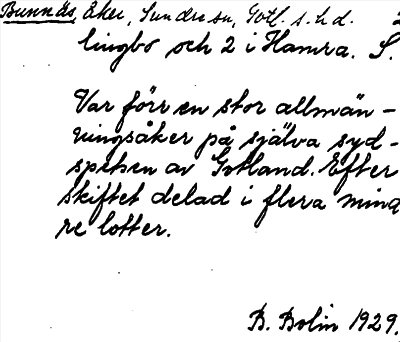 Bunnäs, åker, Sundre sn, Gotl. s. h d. 2
lingbo och 2 i Hamra. S.
Var förr en stor allmän-
ningsåker på själva syd-
spetsen av Gotland. Efter
skiftet delad i flera mind
re lotter.
B. Bolin 1929.